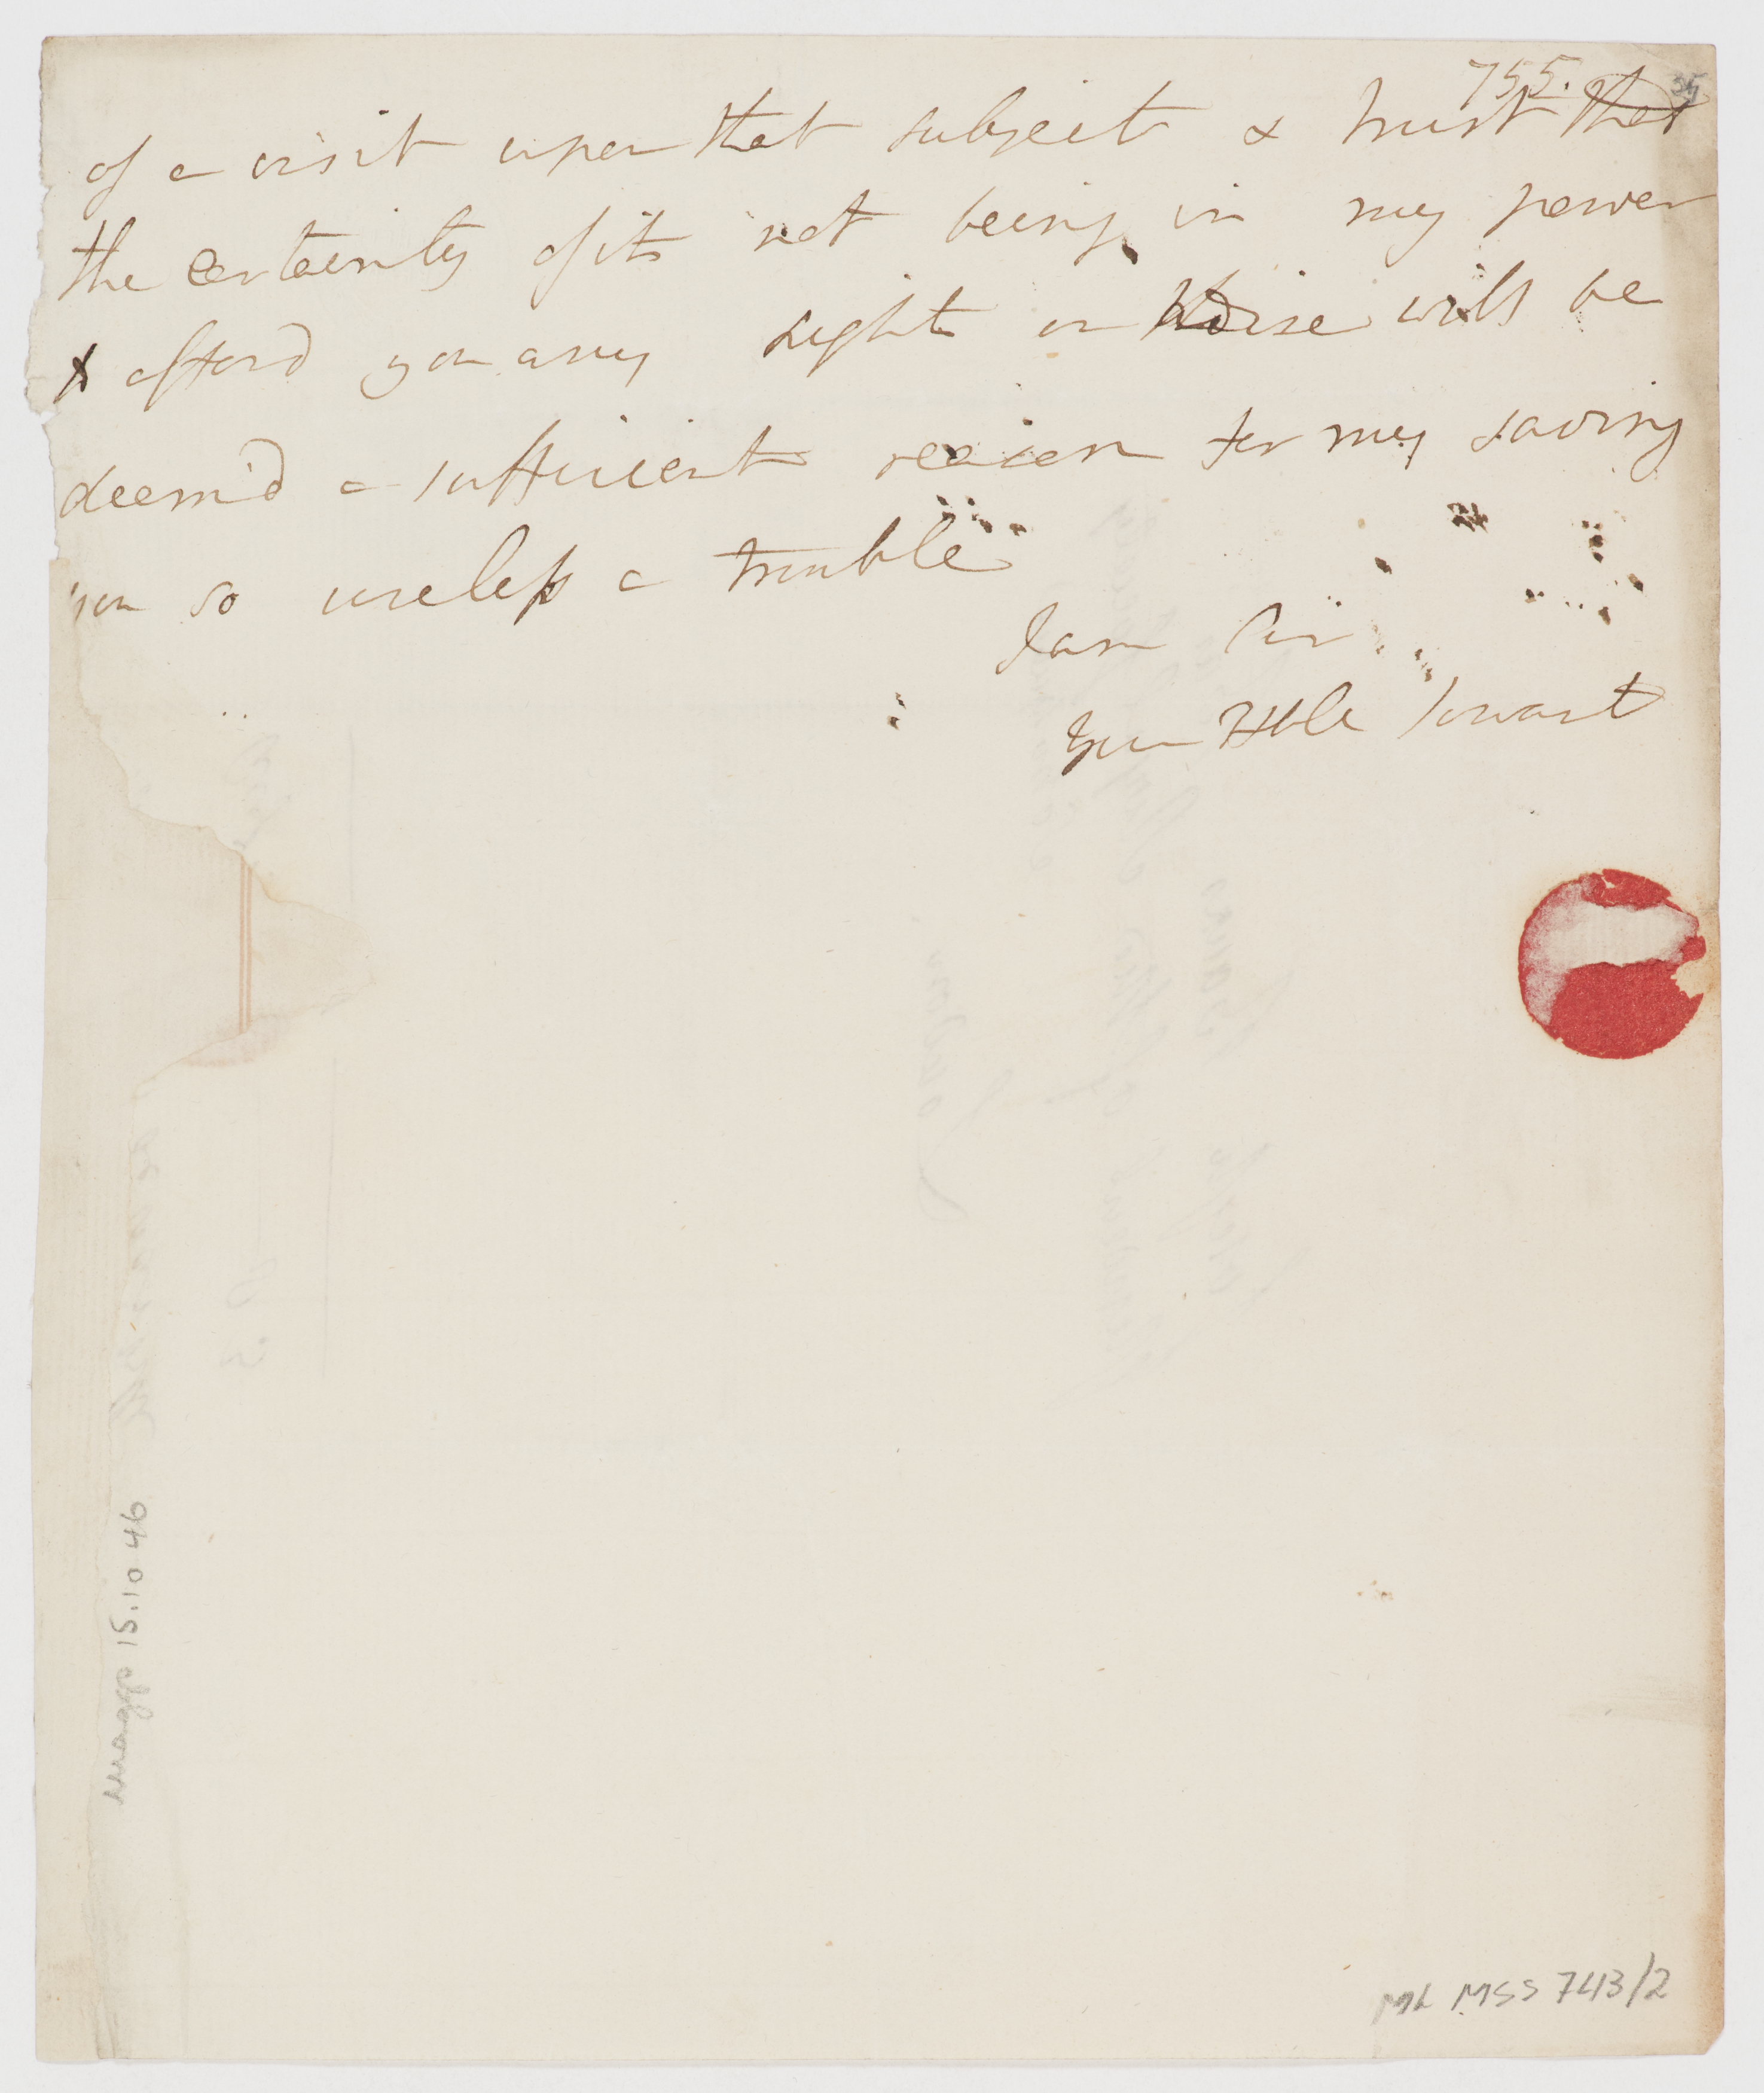 755.
35
of a visit upon that subject & trust that
the certainty of its not being in my power
to afford you any light or advise will be
deem'd a sufficient reason for my saving
you so useless a trouble
I am Sir
Your Hble Servant
Maggs 15.10.46
ML MSS 743/2